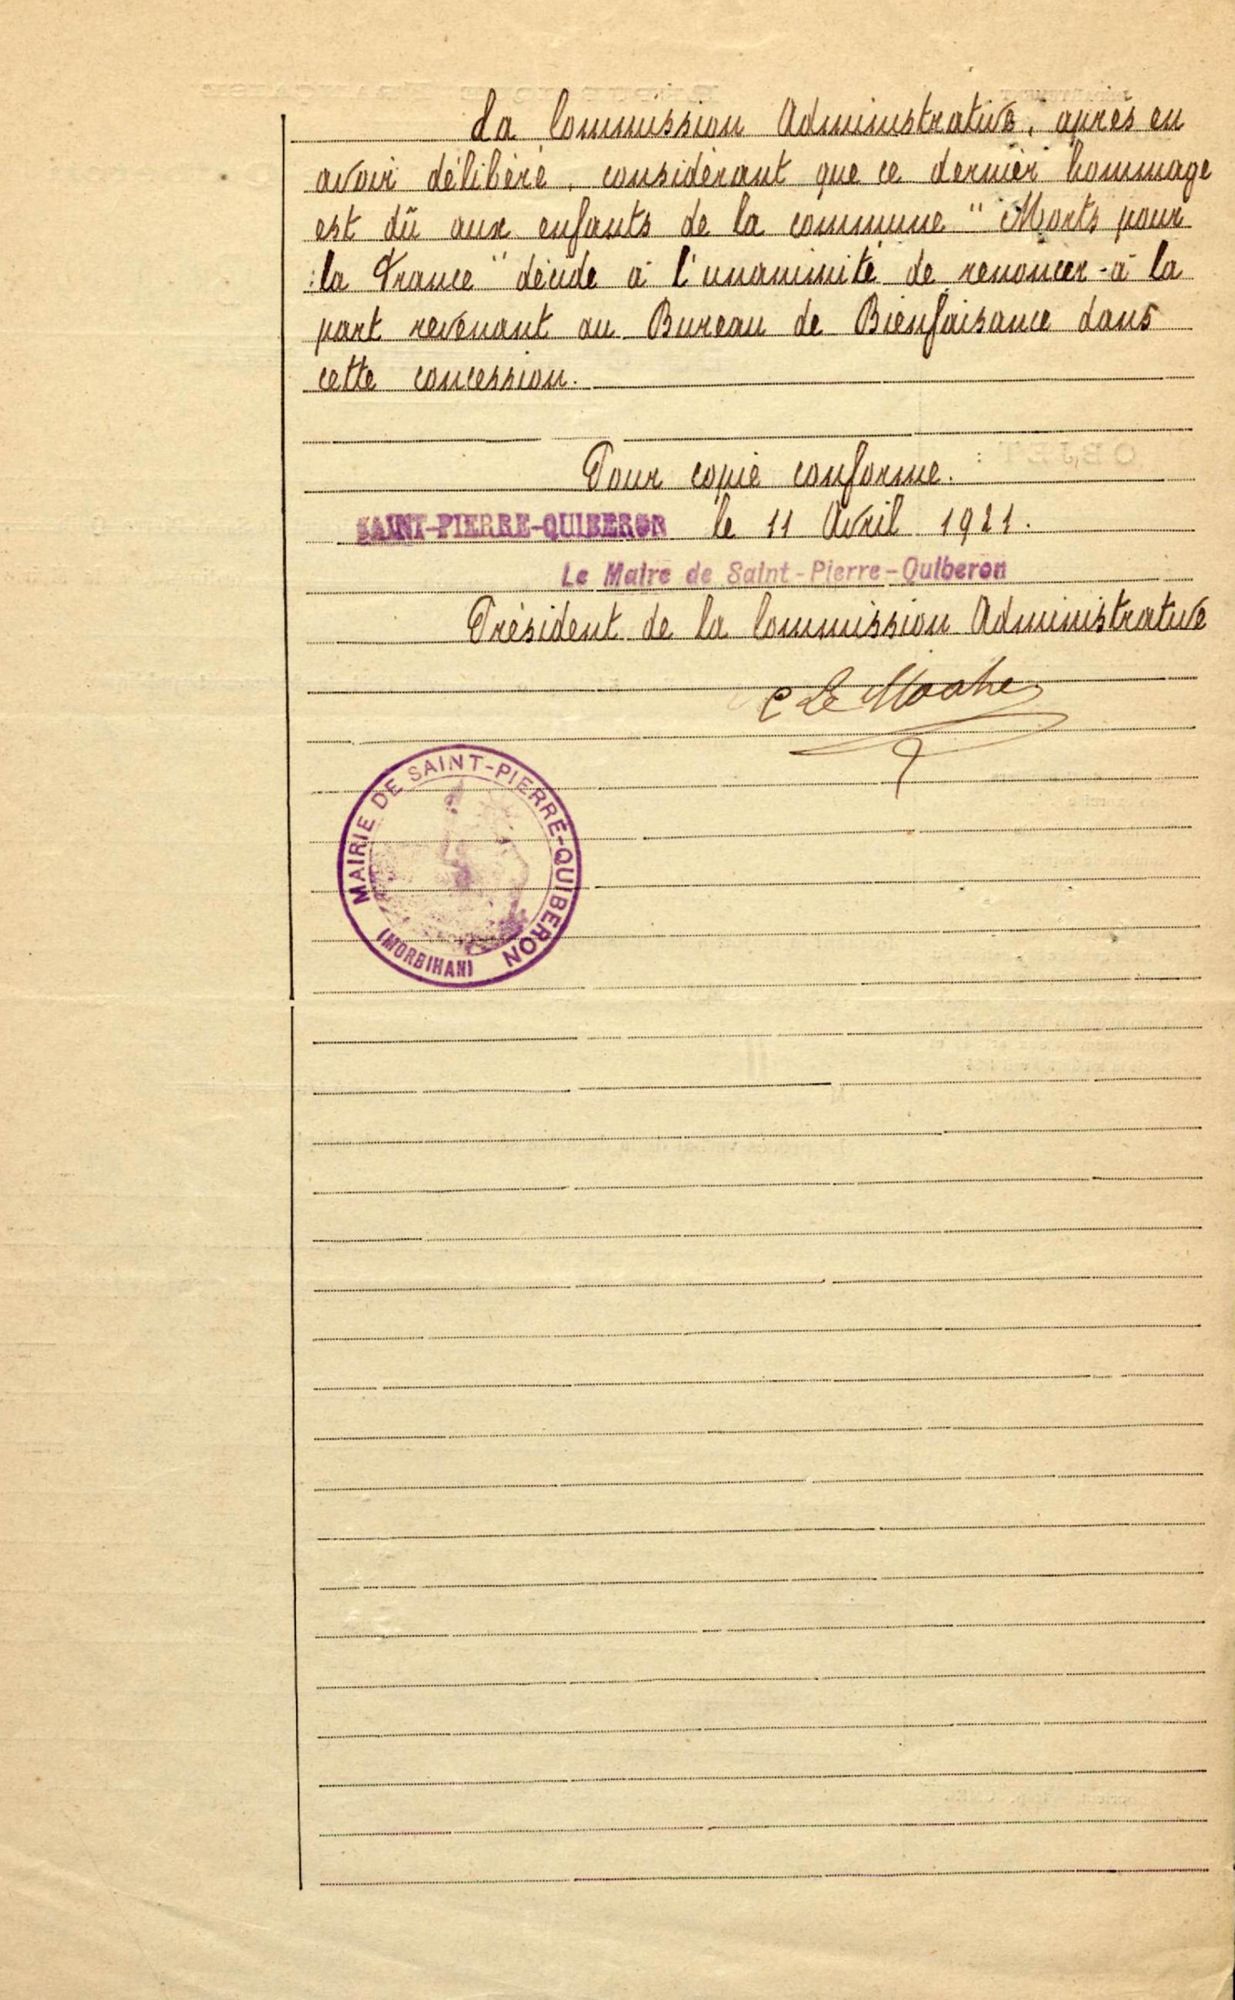 La Commission Administrative, après en
avoir délibéré, considérant que ce dernier hommage
est dû aux enfants de la commune "Morts pour
la France" décide à l'unanimité de renoncer à la
part revenant au Bureau de Bienfaisance dans
cette concession.
Pour copie conforme.
SAINT-PIERRE-QUIBERON le 11 Avril 1921.
Le Maire de Saint-Pierre-Quiberon
Président de la Commission Administrative
MAIRIE DE SAINT-PIERRE-QUIBERON
(MORBIHAN)